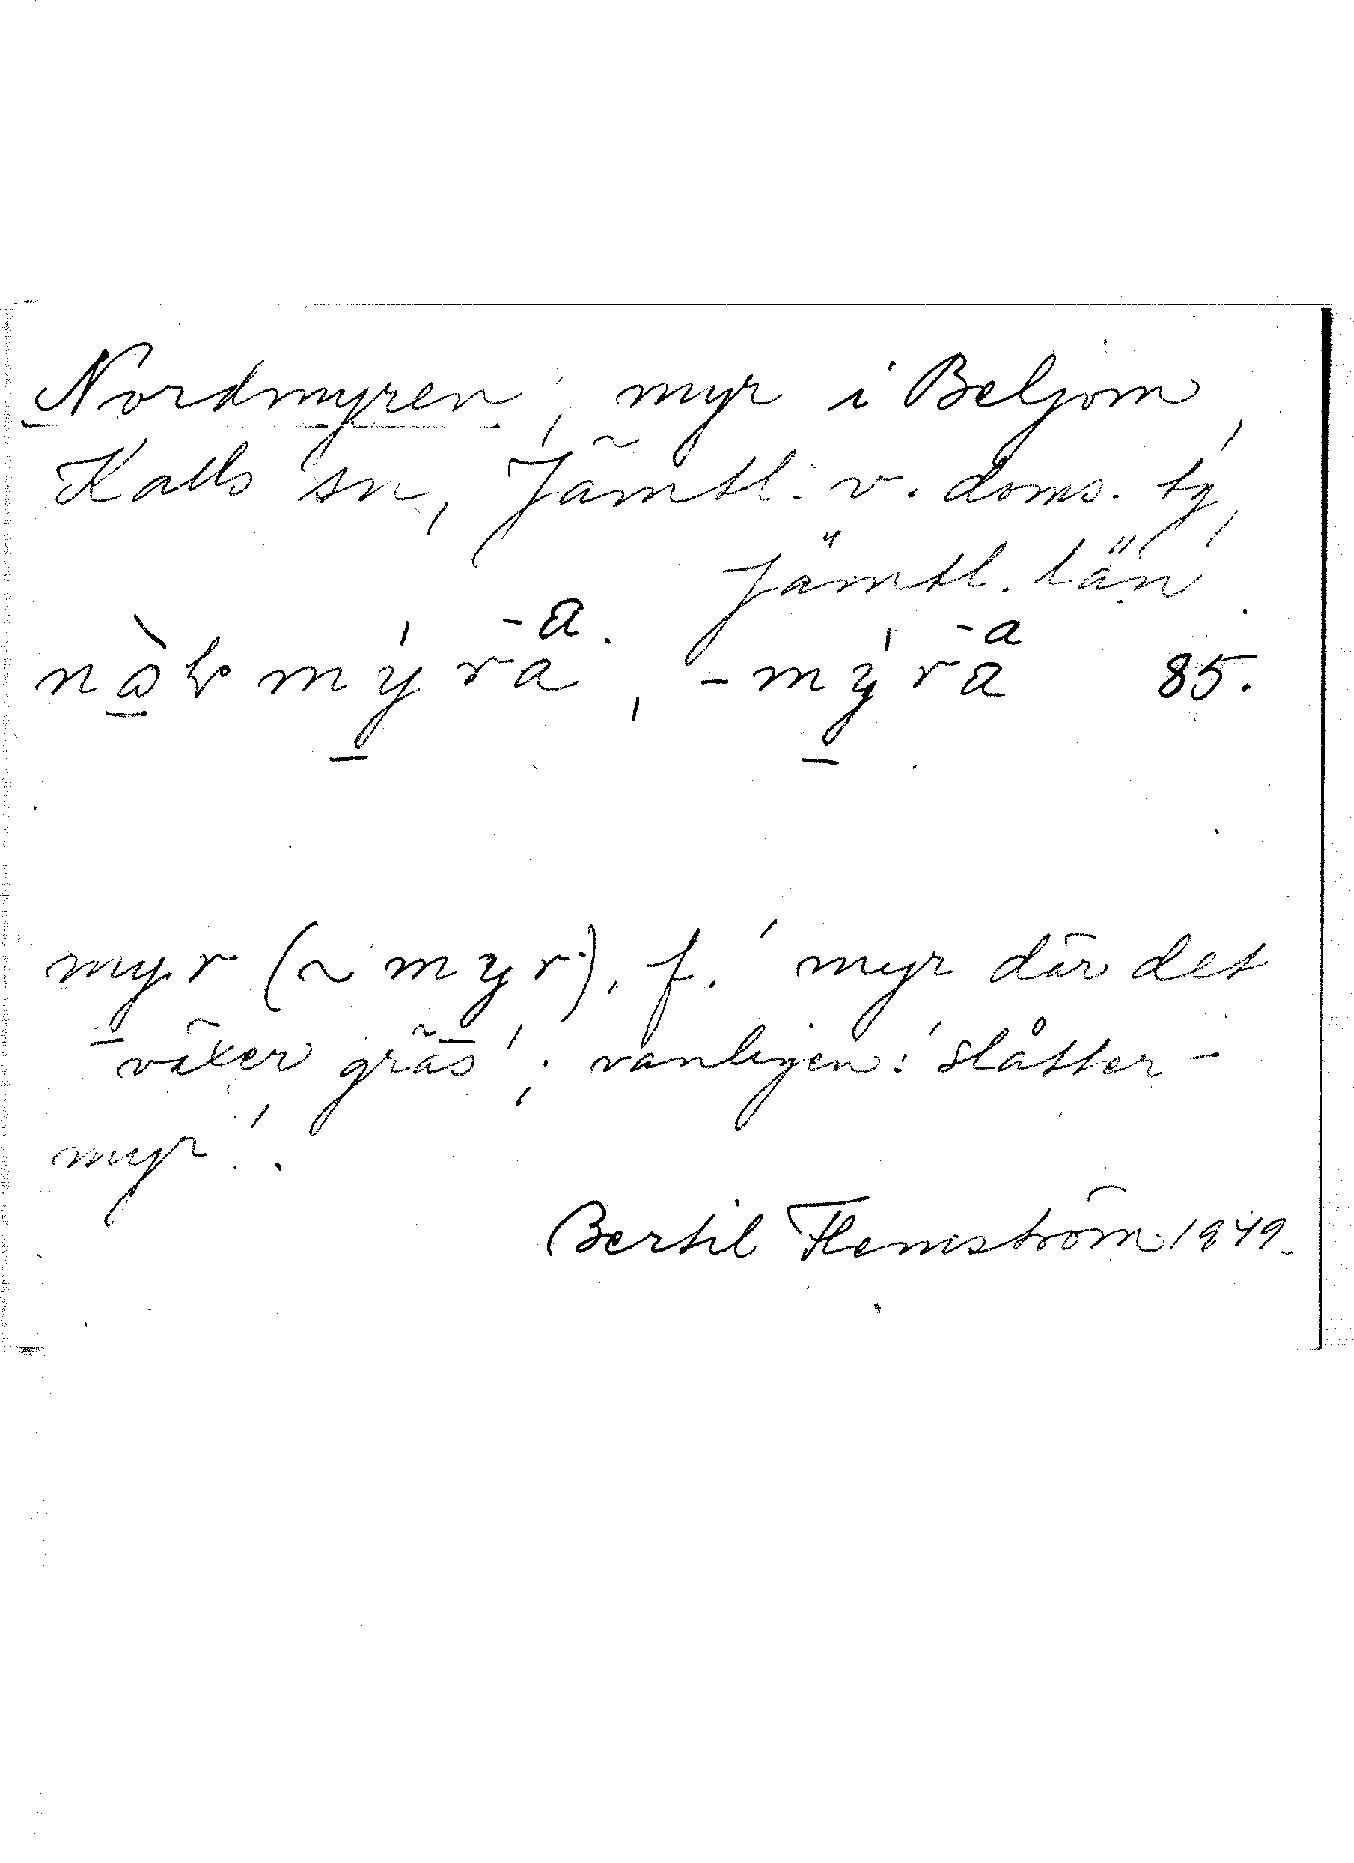 Nordmyren, myr i Beljom,
Kalls sn, Jämtl. v. doms. tg,
Jämtl. län
-a. -a
myrä, -myrä 85.
myr (~ myr), f. 'myr där det
växer gräs'; vanligen: 'slåtter-
myr'.
Bertil Flemström 1949.